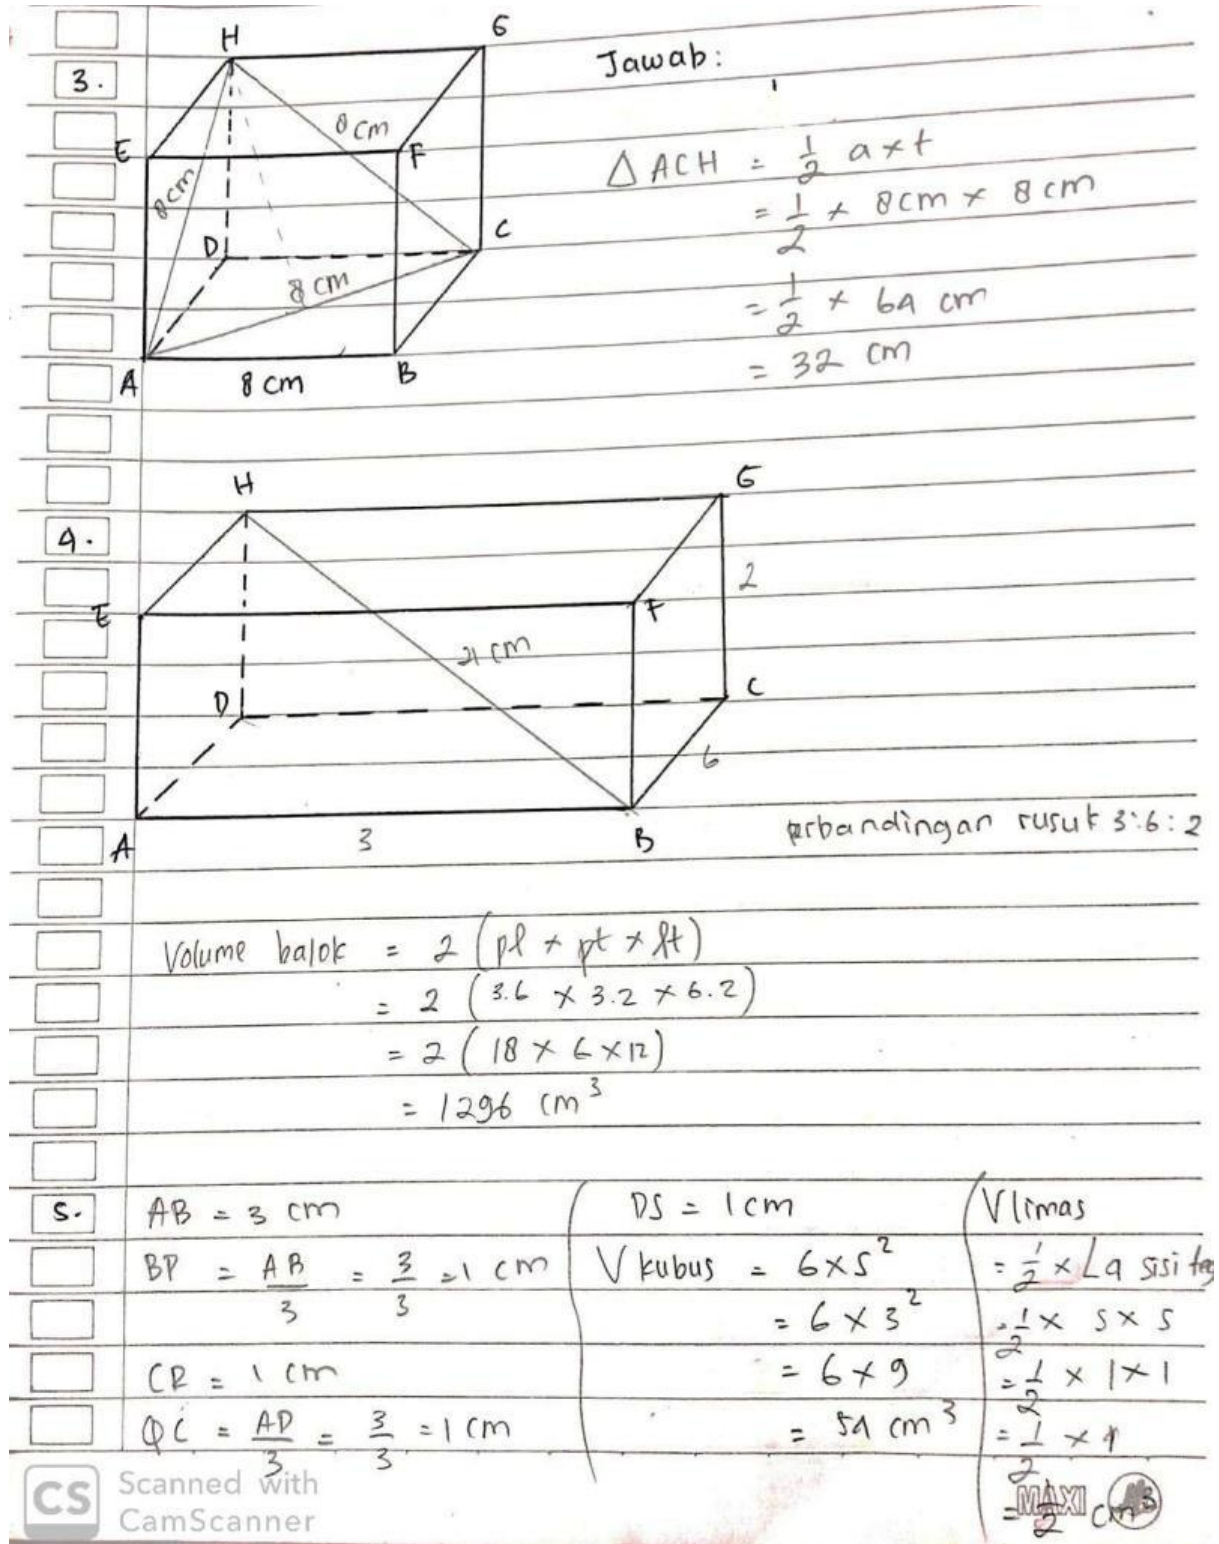 3.
H
G
E
F
D
C
A
B
8 cm
8 cm
8 cm
8 cm
Jawab:
△ ACH = 1/2 a x t
= 1/2 x 8cm x 8 cm
= 1/2 x 64 cm
= 32 cm
4.
H
G
E
F
2
21 cm
D
C
6
A
3
B
perbandingan rusuk 3:6:2
Volume balok = 2 (pl x pt x lt)
= 2 (3.6 x 3.2 x 6.2)
= 2 (18 x 6 x 12)
= 1296 cm³
5.
AB = 3 cm
BP = AB/3 = 3/3 = 1 cm
CR = 1 cm
QC = AD/3 = 3/3 = 1 cm
DS = 1 cm
V kubus = 6 x s²
= 6 x 3²
= 6 x 9
= 54 cm³
V limas
= 1/2 x La sisi teg
= 1/2 x s x s
= 1/2 x 1 x 1
= 1/2 x 1
= 1/2 cm³
MAXI
CS
Scanned with
CamScanner